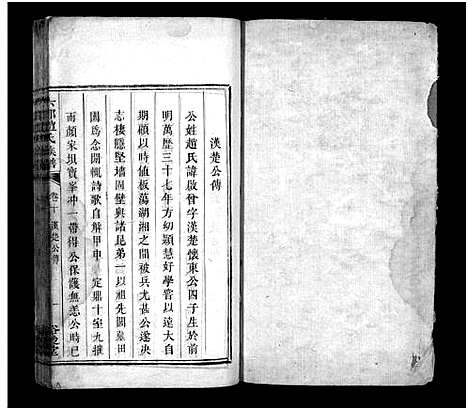 漢楚公傳
公姓趙氏諱啟曾字漢楚懷東公四子生於前
明萬歷三十七年方幼穎慧好學嘗以遠大自
期顧以時值板蕩湖湘之間被兵尤甚公遂决
志棲隱堅墻固壁與諸昆弟一以祖先園田
圍為念閒輒詩歌自解甲申 定鼎十室九摧
而顏家坝寶峯冲一帶得公保護無恙公時已
趙氏族譜
卷 漢楚公傳